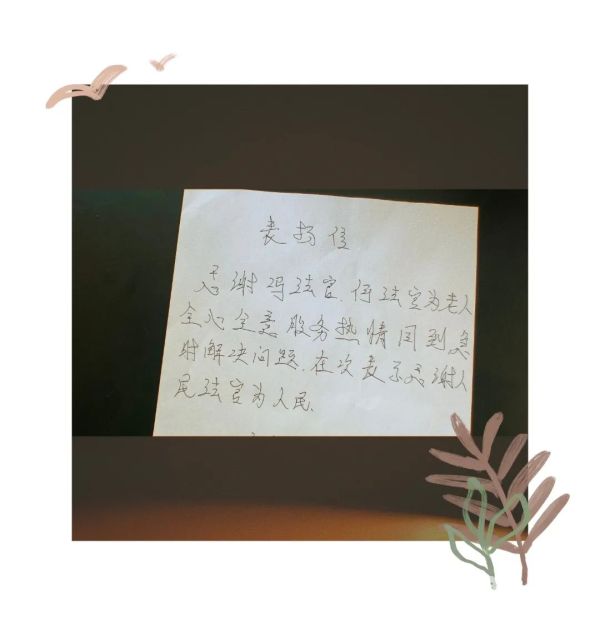 表扬信
感谢冯法官、何法官为老人
全心全意服务热情周到急
时解决问题、在次表示感谢人
民法官为人民、